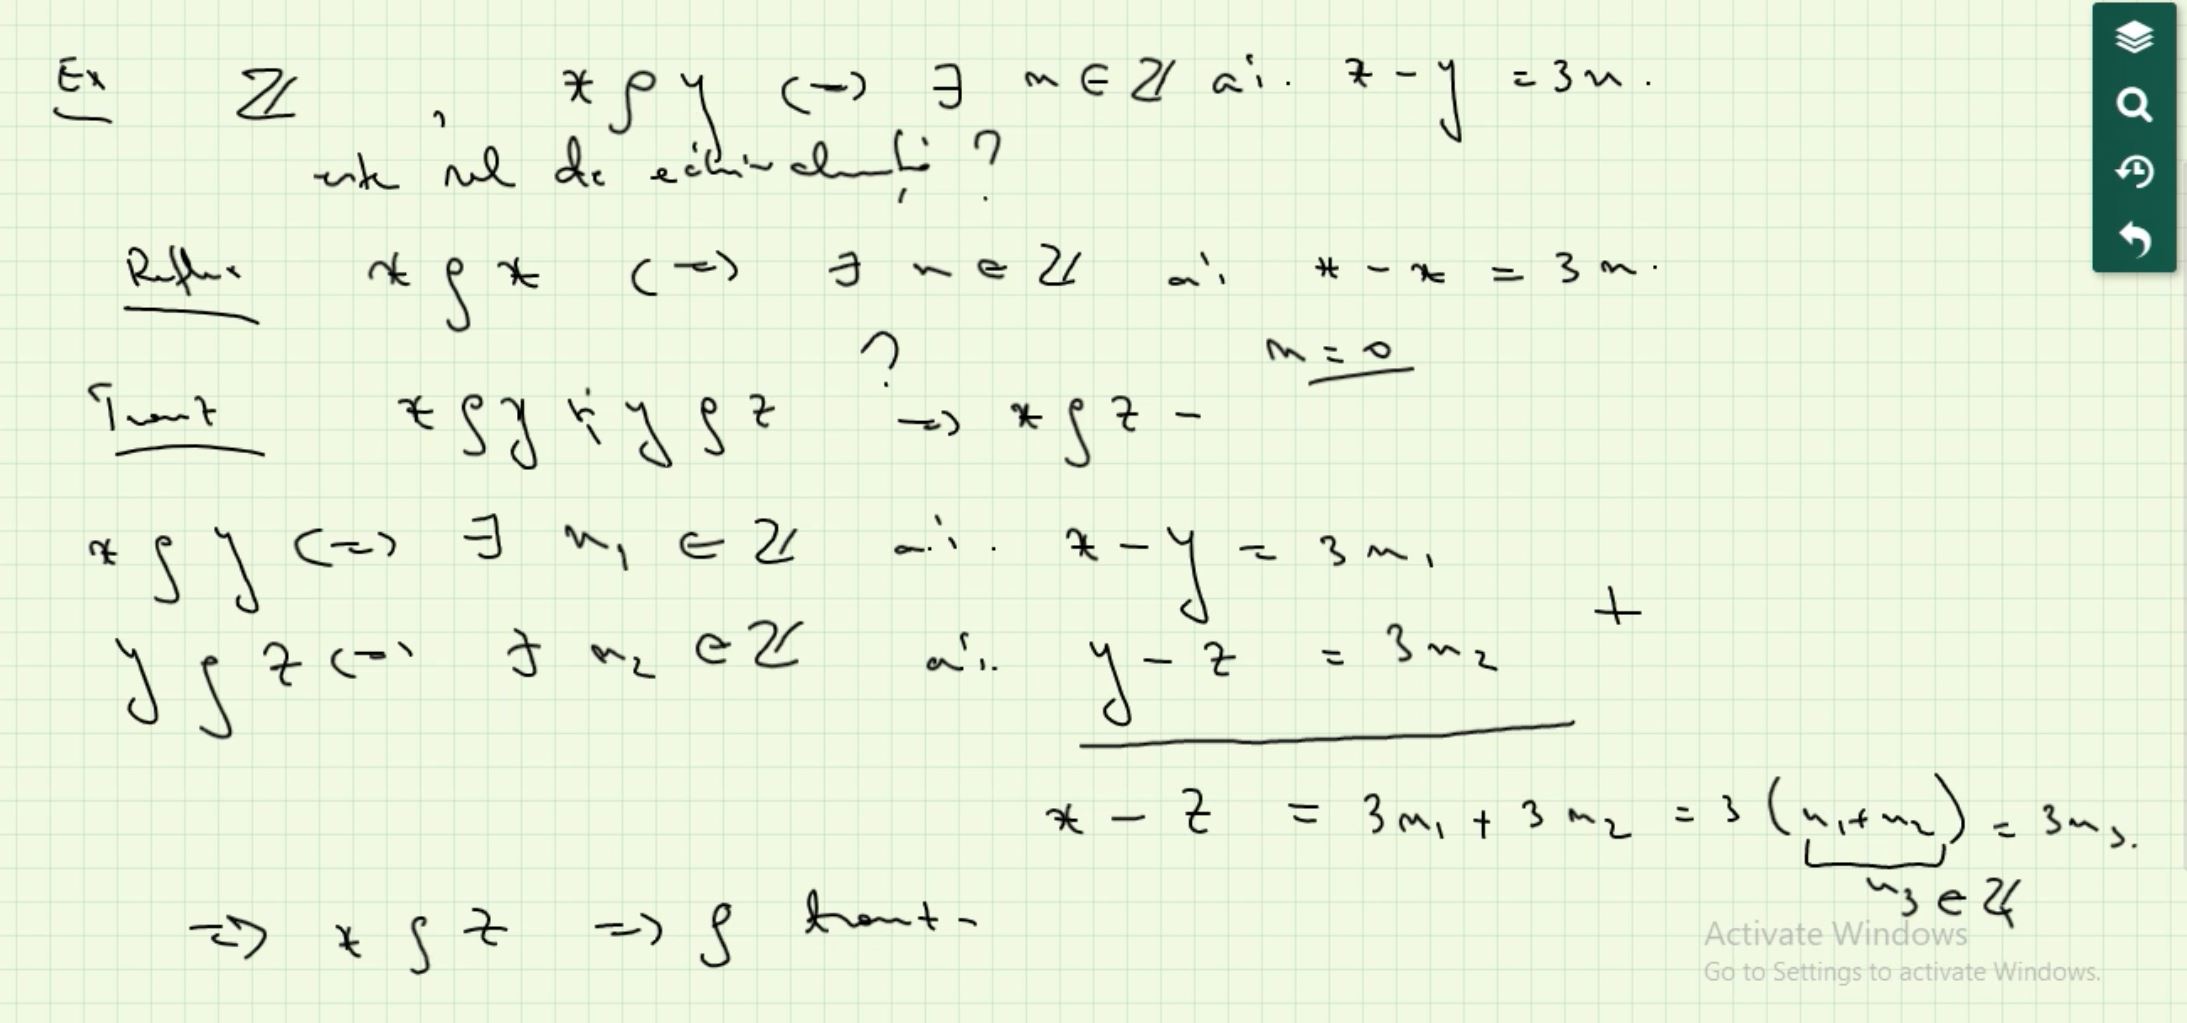 Ex ℤ , x ρ y (=) ∃ n ∈ ℤ a.î. x - y = 3n.
este rel de echivalență ?
Reflex x ρ x (=) ∃ n ∈ ℤ a.î. x - x = 3n.
n = 0
Tranz x ρ y și y ρ z ?=> x ρ z -
x ρ y (=) ∃ n₁ ∈ ℤ a.î. x - y = 3n₁
+
y ρ z (=) ∃ n₂ ∈ ℤ a.î. y - z = 3n₂
x - z = 3n₁ + 3n₂ = 3(n₁+n₂) = 3n₃.
n₃ ∈ ℤ
=> x ρ z => ρ tranz -
Activate Windows
Go to Settings to activate Windows.